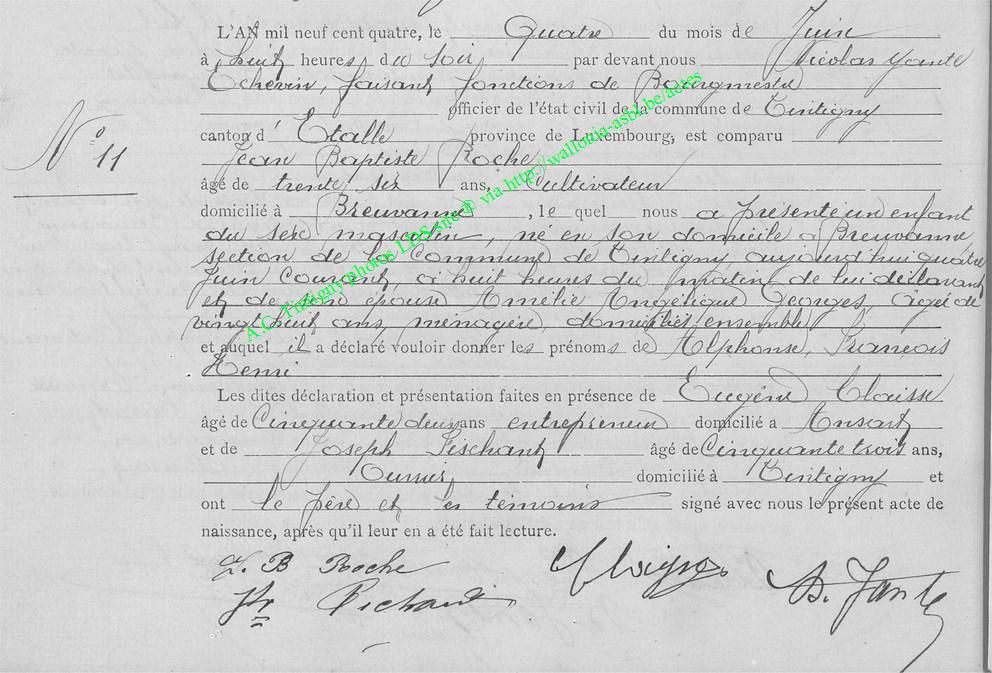 L'AN mil neuf cent quatre, le Quatre du mois de Juin
à huit heures du soir par devant nous Nicolas Jante
Echevin, faisant fonctions de Bourgmestre
officier de l'état civil de la commune de Tintigny
N° 11
canton d' Etalle province de Luxembourg, est comparu
Jean Baptiste Roche
âgé de trente six ans, Cultivateur
domicilié à Breuvanne, le quel nous a présenté un enfant
du sexe masculin, né en son domicile à Breuvanne
section de la Commune de Tintigny, aujourd'hui quatre
Juin courant, à huit heures du matin de lui déclarant
et de son épouse Amélie Angélique Georges, âgée de
vingt huit ans, ménagère, domiciliés ensemble
et auquel il a déclaré vouloir donner les prénoms de Alphonse, François
Henri
Les dites déclaration et présentation faites en présence de Eugène Claisse
âgé de Cinquante deux ans entrepreneur domicilié à Ansart
et de Joseph Pischart âgé de Cinquante trois ans,
Ouvrier domicilié à Tintigny et
ont le père et les témoins signé avec nous le présent acte de
naissance, après qu'il leur en a été fait lecture.
J. B Roche
A.C. Tintigny photos LDS site © via http://wallonia-asbl.be/actes